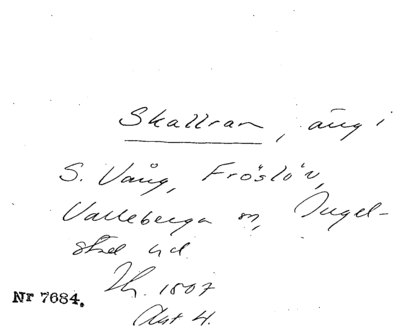 Skallran, äng i
S. Vång, Fröslöv,
Valleberga sn, Ingel-
stad hd.
Lh. 1807
Akt 4.
Nr 7684.